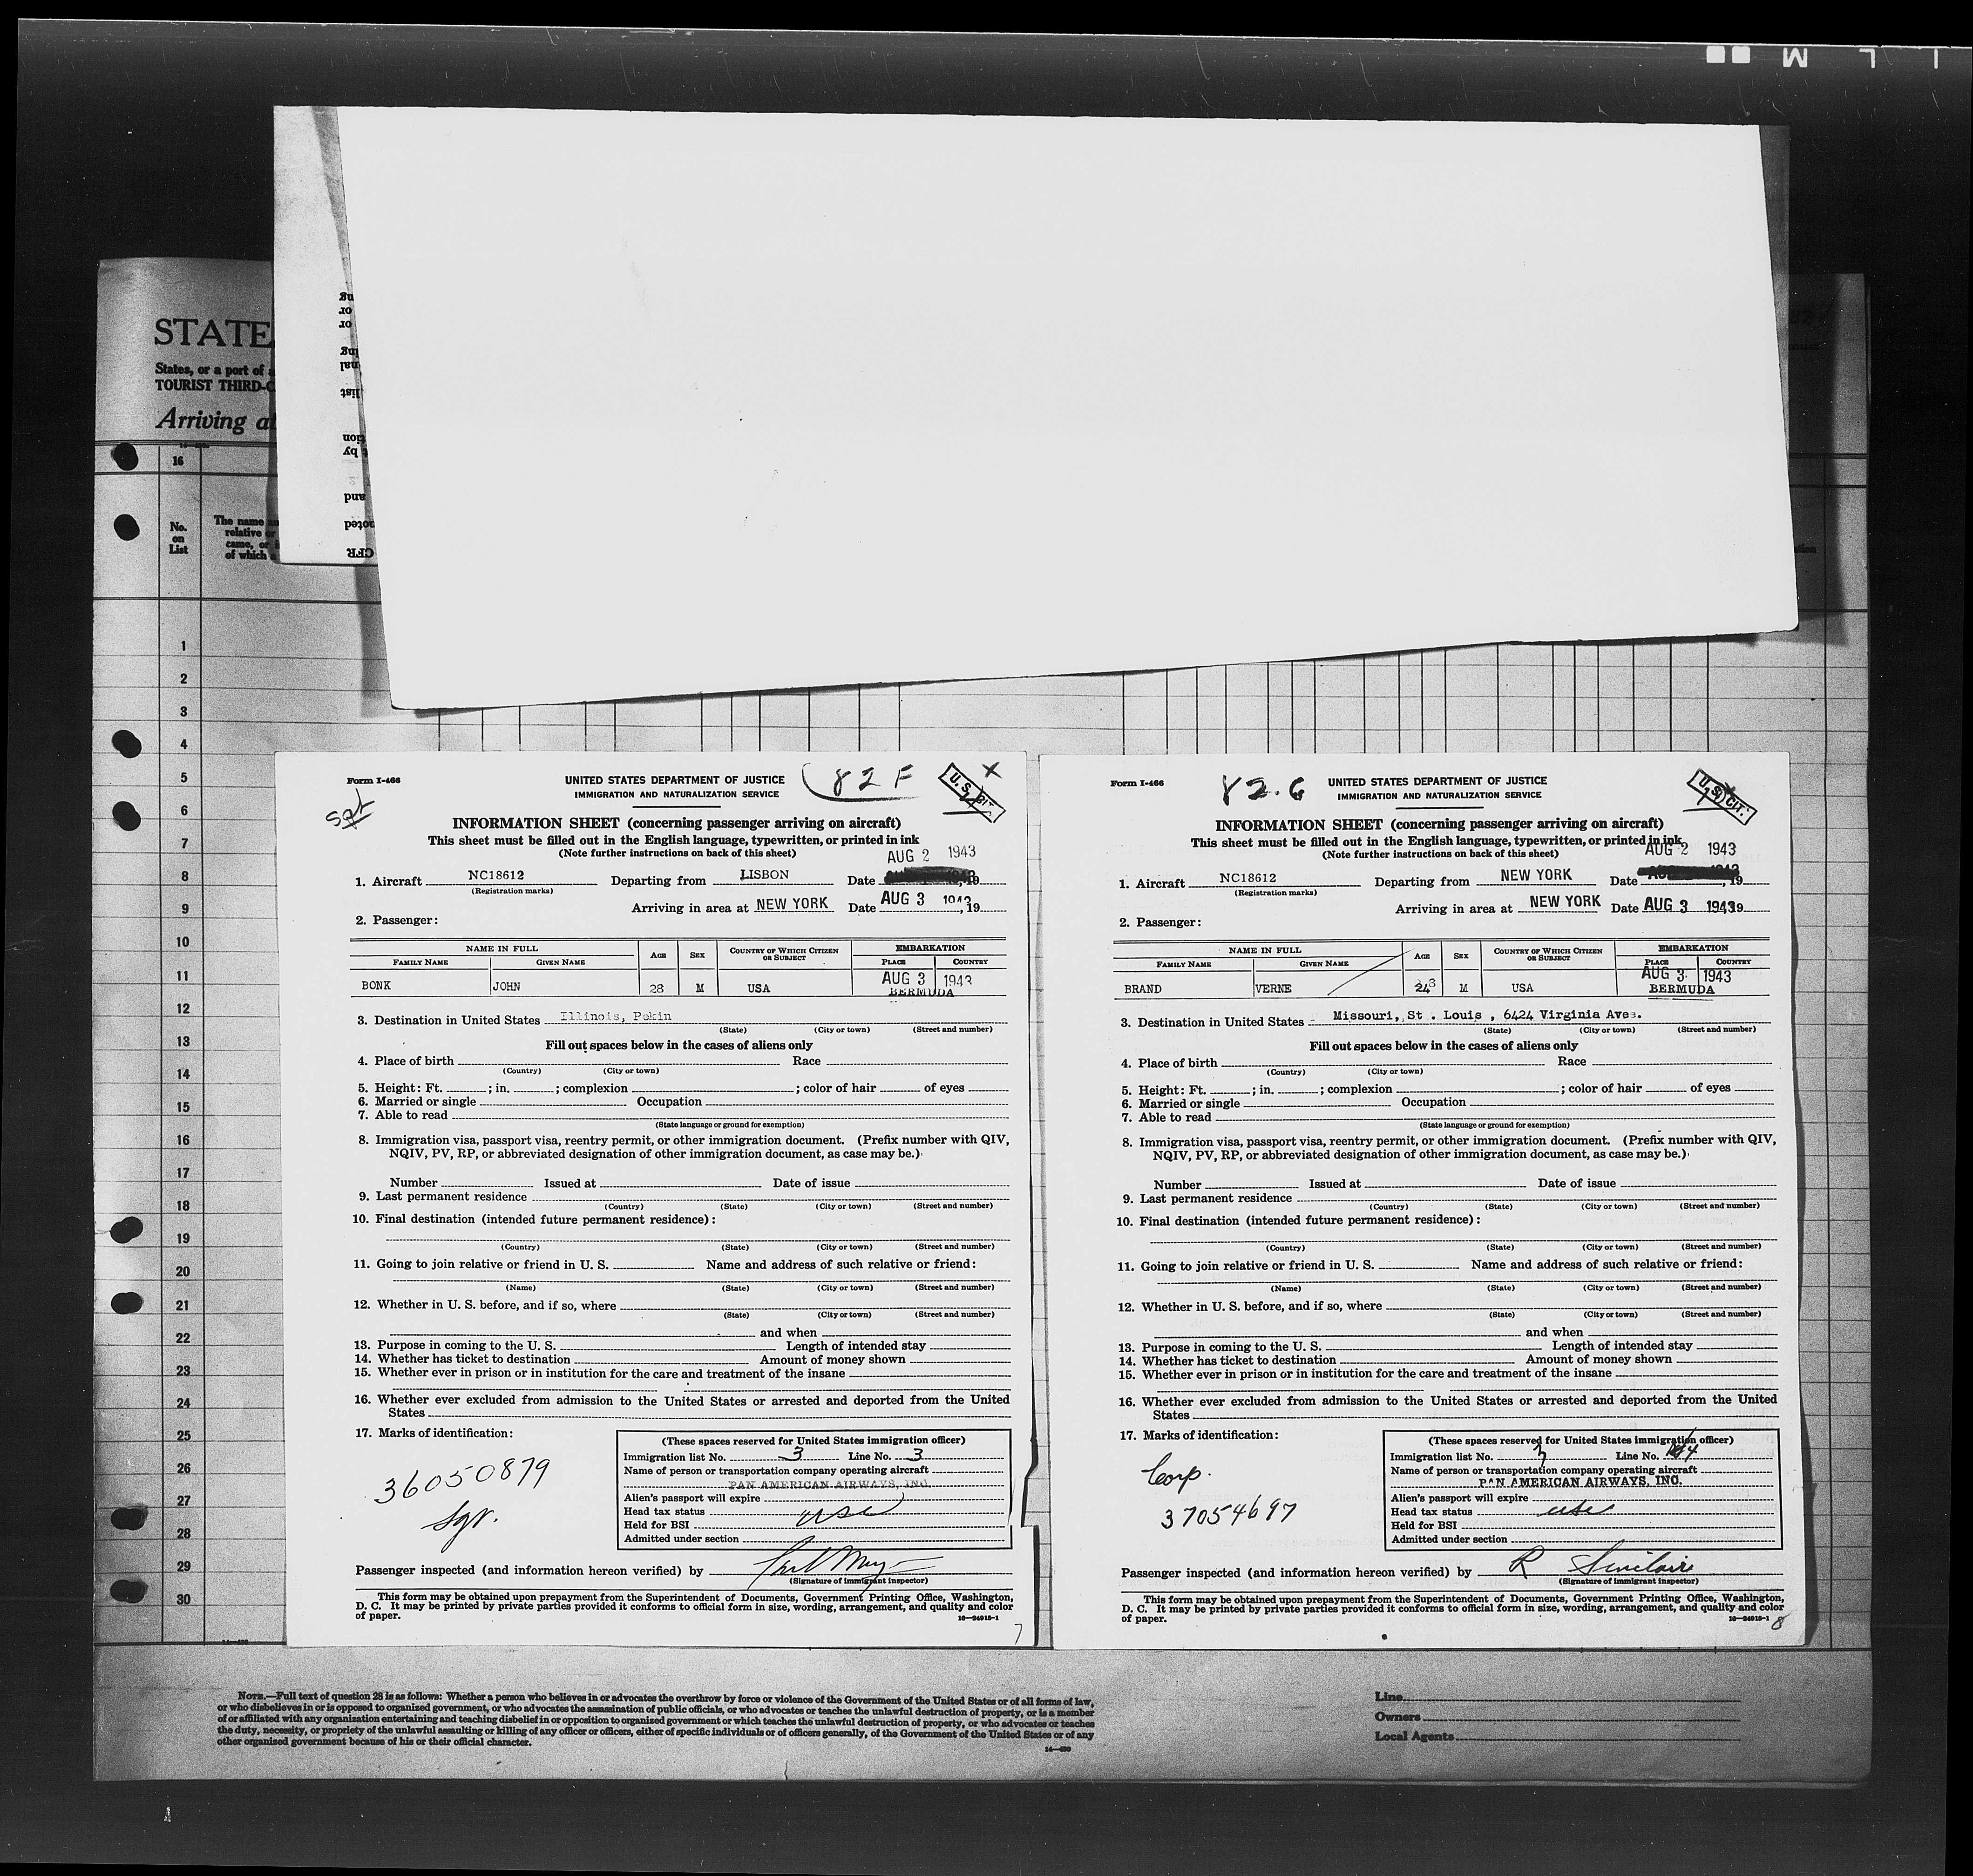 STATE
States, or a port of a
TOURIST THIRD-C
Arriving at
16
No.
on
List
The name
relative or
came, or
of which
1
2
3
4
5
6
7
8
9
10
11
12
13
14
15
16
17
18
19
20
21
22
23
24
25
26
27
28
29
30
Form I-466
Sgt
UNITED STATES DEPARTMENT OF JUSTICE
IMMIGRATION AND NATURALIZATION SERVICE
82 F
U.S. CIT.
X
INFORMATION SHEET (concerning passenger arriving on aircraft)
This sheet must be filled out in the English language, typewritten, or printed in ink
(Note further instructions on back of this sheet)
AUG 2 1943
1. Aircraft NC18612 Departing from LISBON Date , 19
(Registration marks)
Arriving in area at NEW YORK Date AUG 3 1943, 19
2. Passenger:
NAME IN FULL AGE SEX COUNTRY OF WHICH CITIZEN OR SUBJECT EMBARKATION
FAMILY NAME GIVEN NAME PLACE COUNTRY
AUG 3 1943
BONK JOHN 28 M USA BERMUDA
3. Destination in United States Illinois, Pekin
(State) (City or town) (Street and number)
Fill out spaces below in the cases of aliens only
4. Place of birth Race
(Country) (City or town)
5. Height: Ft. ; in. ; complexion ; color of hair of eyes
6. Married or single Occupation
7. Able to read
(State language or ground for exemption)
8. Immigration visa, passport visa, reentry permit, or other immigration document. (Prefix number with QIV,
NQIV, PV, RP, or abbreviated designation of other immigration document, as case may be.)
Number Issued at Date of issue
9. Last permanent residence
(Country) (State) (City or town) (Street and number)
10. Final destination (intended future permanent residence):
(Country) (State) (City or town) (Street and number)
11. Going to join relative or friend in U. S. Name and address of such relative or friend:
(Name) (State) (City or town) (Street and number)
12. Whether in U. S. before, and if so, where
(State) (City or town) (Street and number)
and when
13. Purpose in coming to the U. S. Length of intended stay
14. Whether has ticket to destination Amount of money shown
15. Whether ever in prison or in institution for the care and treatment of the insane
16. Whether ever excluded from admission to the United States or arrested and deported from the United
States
17. Marks of identification:
36050879
Sgt.
(These spaces reserved for United States immigration officer)
Immigration list No. 3 Line No. 3
Name of person or transportation company operating aircraft
PAN AMERICAN AIRWAYS, INC.
Alien's passport will expire
Head tax status usc
Held for BSI
Admitted under section
Passenger inspected (and information hereon verified) by
(Signature of immigrant inspector)
This form may be obtained upon prepayment from the Superintendent of Documents, Government Printing Office, Washington,
D. C. It may be printed by private parties provided it conforms to official form in size, wording, arrangement, and quality and color
of paper. 16—24915-1
7
Form I-466
82.G
UNITED STATES DEPARTMENT OF JUSTICE
IMMIGRATION AND NATURALIZATION SERVICE
U.S. CIT.
INFORMATION SHEET (concerning passenger arriving on aircraft)
This sheet must be filled out in the English language, typewritten, or printed in ink
(Note further instructions on back of this sheet)
AUG 2 1943
1. Aircraft NC18612 Departing from NEW YORK Date , 19
(Registration marks)
Arriving in area at NEW YORK Date AUG 3 1943 19
2. Passenger:
NAME IN FULL AGE SEX COUNTRY OF WHICH CITIZEN OR SUBJECT EMBARKATION
FAMILY NAME GIVEN NAME PLACE COUNTRY
AUG 3 1943
BRAND VERNE 24 M USA BERMUDA
3. Destination in United States Missouri, St. Louis, 6424 Virginia Ave.
(State) (City or town) (Street and number)
Fill out spaces below in the cases of aliens only
4. Place of birth Race
(Country) (City or town)
5. Height: Ft. ; in. ; complexion ; color of hair of eyes
6. Married or single Occupation
7. Able to read
(State language or ground for exemption)
8. Immigration visa, passport visa, reentry permit, or other immigration document. (Prefix number with QIV,
NQIV, PV, RP, or abbreviated designation of other immigration document, as case may be.)
Number Issued at Date of issue
9. Last permanent residence
(Country) (State) (City or town) (Street and number)
10. Final destination (intended future permanent residence):
(Country) (State) (City or town) (Street and number)
11. Going to join relative or friend in U. S. Name and address of such relative or friend:
(Name) (State) (City or town) (Street and number)
12. Whether in U. S. before, and if so, where
(State) (City or town) (Street and number)
and when
13. Purpose in coming to the U. S. Length of intended stay
14. Whether has ticket to destination Amount of money shown
15. Whether ever in prison or in institution for the care and treatment of the insane
16. Whether ever excluded from admission to the United States or arrested and deported from the United
States
17. Marks of identification:
Corp.
37054697
(These spaces reserved for United States immigration officer)
Immigration list No. 3 Line No. 4
Name of person or transportation company operating aircraft
PAN AMERICAN AIRWAYS, INC.
Alien's passport will expire
Head tax status usc
Held for BSI
Admitted under section
Passenger inspected (and information hereon verified) by R Sinclair
(Signature of immigrant inspector)
This form may be obtained upon prepayment from the Superintendent of Documents, Government Printing Office, Washington,
D. C. It may be printed by private parties provided it conforms to official form in size, wording, arrangement, and quality and color
of paper. 16—24915-1
8
NOTE.—Full text of question 28 is as follows: Whether a person who believes in or advocates the overthrow by force or violence of the Government of the United States or of all forms of law,
or who disbelieves in or is opposed to organized government, or who advocates the assassination of public officials, or who advocates or teaches the unlawful destruction of property, or is a member
of or affiliated with any organization entertaining and teaching disbelief in or opposition to organized government or which teaches the unlawful destruction of property, or who advocates or teaches
the duty, necessity, or propriety of the unlawful assaulting or killing of any officer or officers, either of specific individuals or of officers generally, of the Government of the United States or of any
other organized government because of his or their official character.
Line
Owners
Local Agents